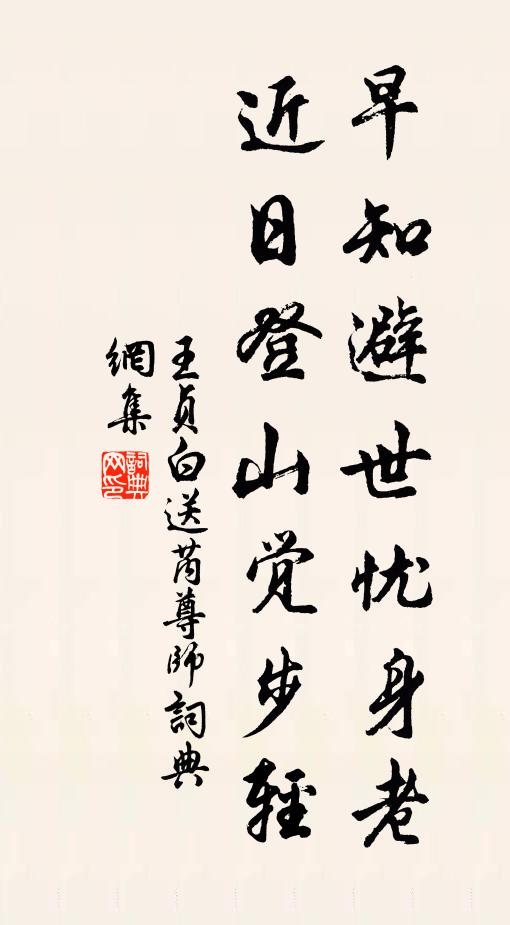 早知避世忧身老
近日登山觉步輕
王貞白送芮尊師詞典
網集
詞典
网印